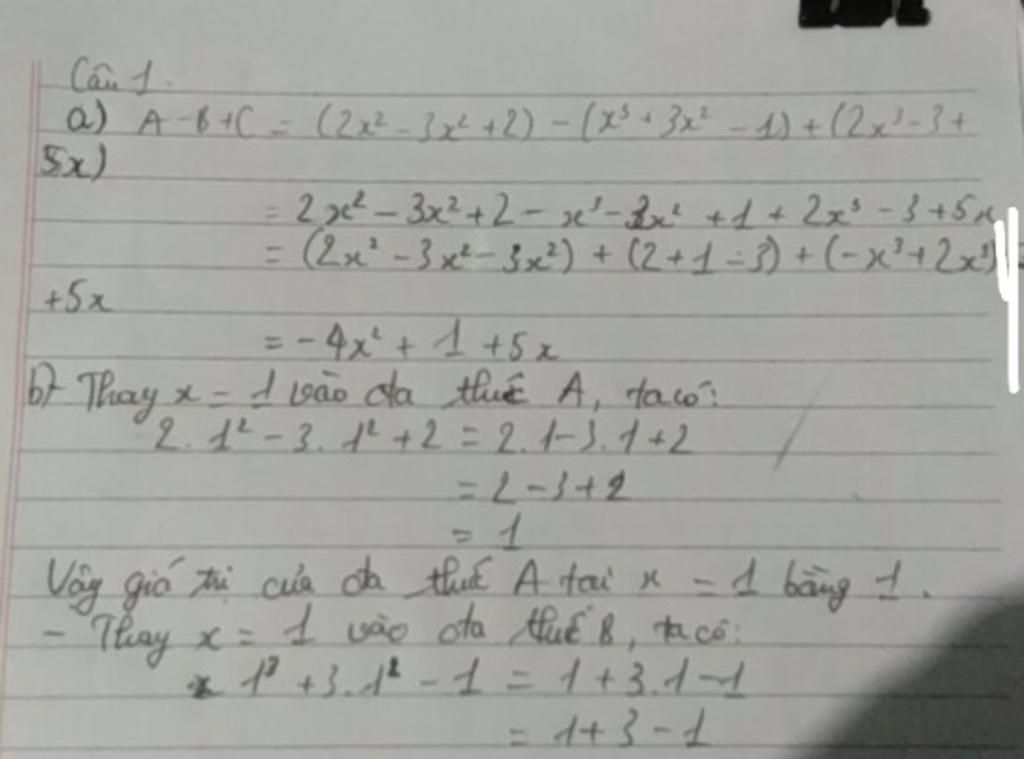 Câu 1.
a) A - B + C = (2x² - 3x² + 2) - (x³ + 3x² - 1) + (2x³ - 3 +
5x)
= 2x² - 3x² + 2 - x³ - 3x² + 1 + 2x³ - 3 + 5x
= (2x² - 3x² - 3x²) + (2 + 1 - 3) + (-x³ + 2x³)
+5x
= -4x² + 1 + 5x
b) Thay x = 1 vào đa thức A, ta có:
2. 1² - 3. 1² + 2 = 2. 1 - 3. 1 + 2
= 2 - 3 + 2
= 1
Vậy giá trị của đa thức A tại x = 1 bằng 1.
- Thay x = 1 vào đa thức B, ta có:
1³ + 3. 1² - 1 = 1 + 3. 1 - 1
= 1 + 3 - 1